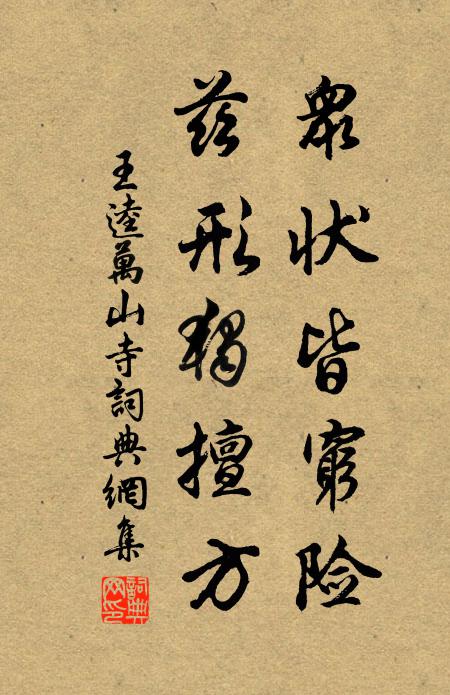 眾狀皆窮险
茲形獨擅方
王逵萬山寺詞典網集
詞典網印